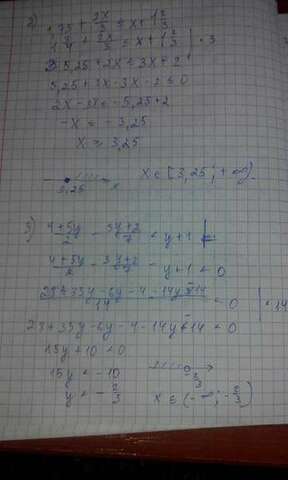 2) 1,75 + 2x/3 ≤ x + 1 2/3
1 3/4 + 2x/3 ≤ x + 1 2/3 | · 3
5,25 + 2x ≤ 3x + 2
5,25 + 2x - 3x - 2 ≤ 0
2x - 3x ≤ -5,25 + 2
-x ≤ -3,25
x ≥ 3,25
3,25 x x ∈ [3,25; +∞).
3) 4+5y/2 - 3y+2/7 < y+1
4+5y/2 - 3y+2/7 - y+1 < 0
28+35y-6y-4-14y+14/14 < 0 | · 14
28+35y-6y-4-14y-14 < 0
15y + 10 < 0
15y < -10
y < -2/3
x ∈ (-∞; -2/3)